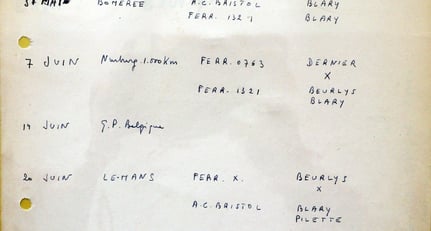 31 MAI BOMEREE A.C. BRISTOL BLARY
FERR. 1321 BLARY
7 JUIN Nurburg 1.000 Km FERR. 0763 DERNIER
X
FERR. 1321 BEURLYS
BLARY
14 JUIN G.P. Belgique
20 JUIN LE-MANS FERR. X. BEURLYS
X
A.C. BRISTOL BLARY
PILETTE